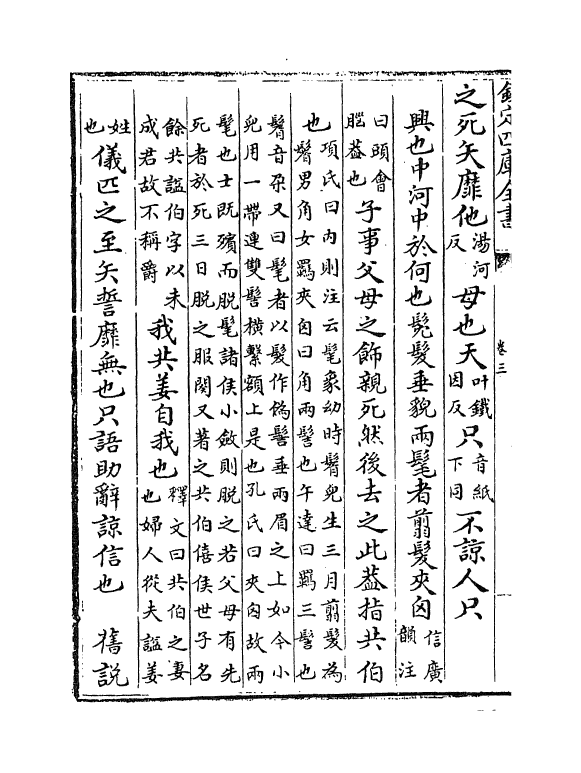 欽定四庫全書 卷三
之死矢靡他湯河反母也天叶鐵因反只音紙下同不諒人只
興也中河中於何也髧髮垂貌兩髦者翦髮夾囟信廣韻注
曰頭會腦葢也子事父母之飾親死然後去之此葢指共伯
也項氏曰内則注云髦象幼時鬌兒生三月翦髮為
鬌男角女羈夾囟曰角兩髻也午達曰羈三髻也
鬌音朶又曰髦者以髮作偽髻垂兩眉之上如今小
兒用一帶連雙髻橫繫額上是也孔氏曰夾囟故兩
髦也士既殯而脱髦諸侯小斂則脱之若父母有先
死者於死三日脱之服闋又著之共伯僖侯世子名
餘共謚伯字以未成君故不稱爵我共姜自我也釋文曰共伯之妻也婦人從夫謚姜
姓也儀匹之至矢誓靡無也只語助辭諒信也 舊說